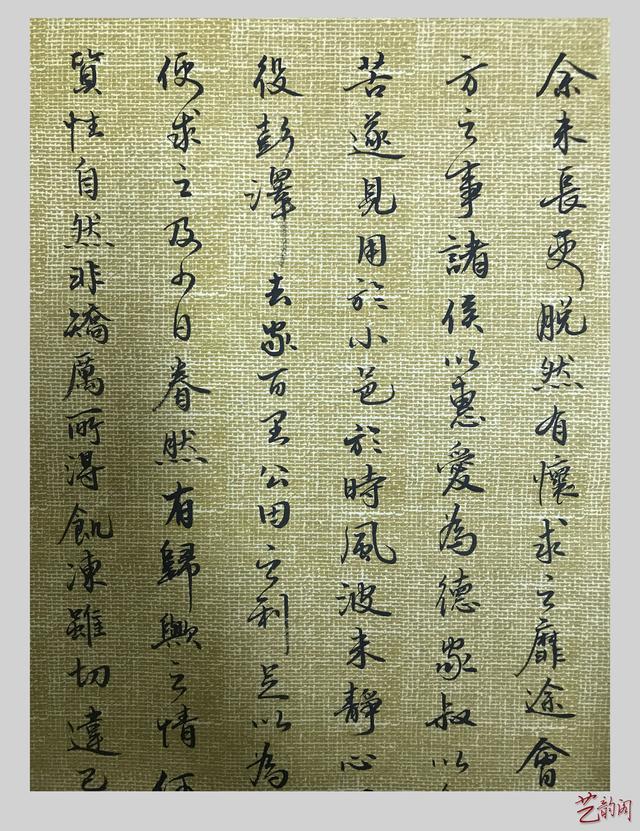 余未長吏脫然有懷求之靡途會
方之事諸侯以惠愛為德家叔以
苦遂見用於小邑於時風波未靜心
役彭澤去家百里公田之利足以為
便求之及少日眷然有歸與之情何
質性自然非矯厲所得飢凍雖切違己
艺韵阁